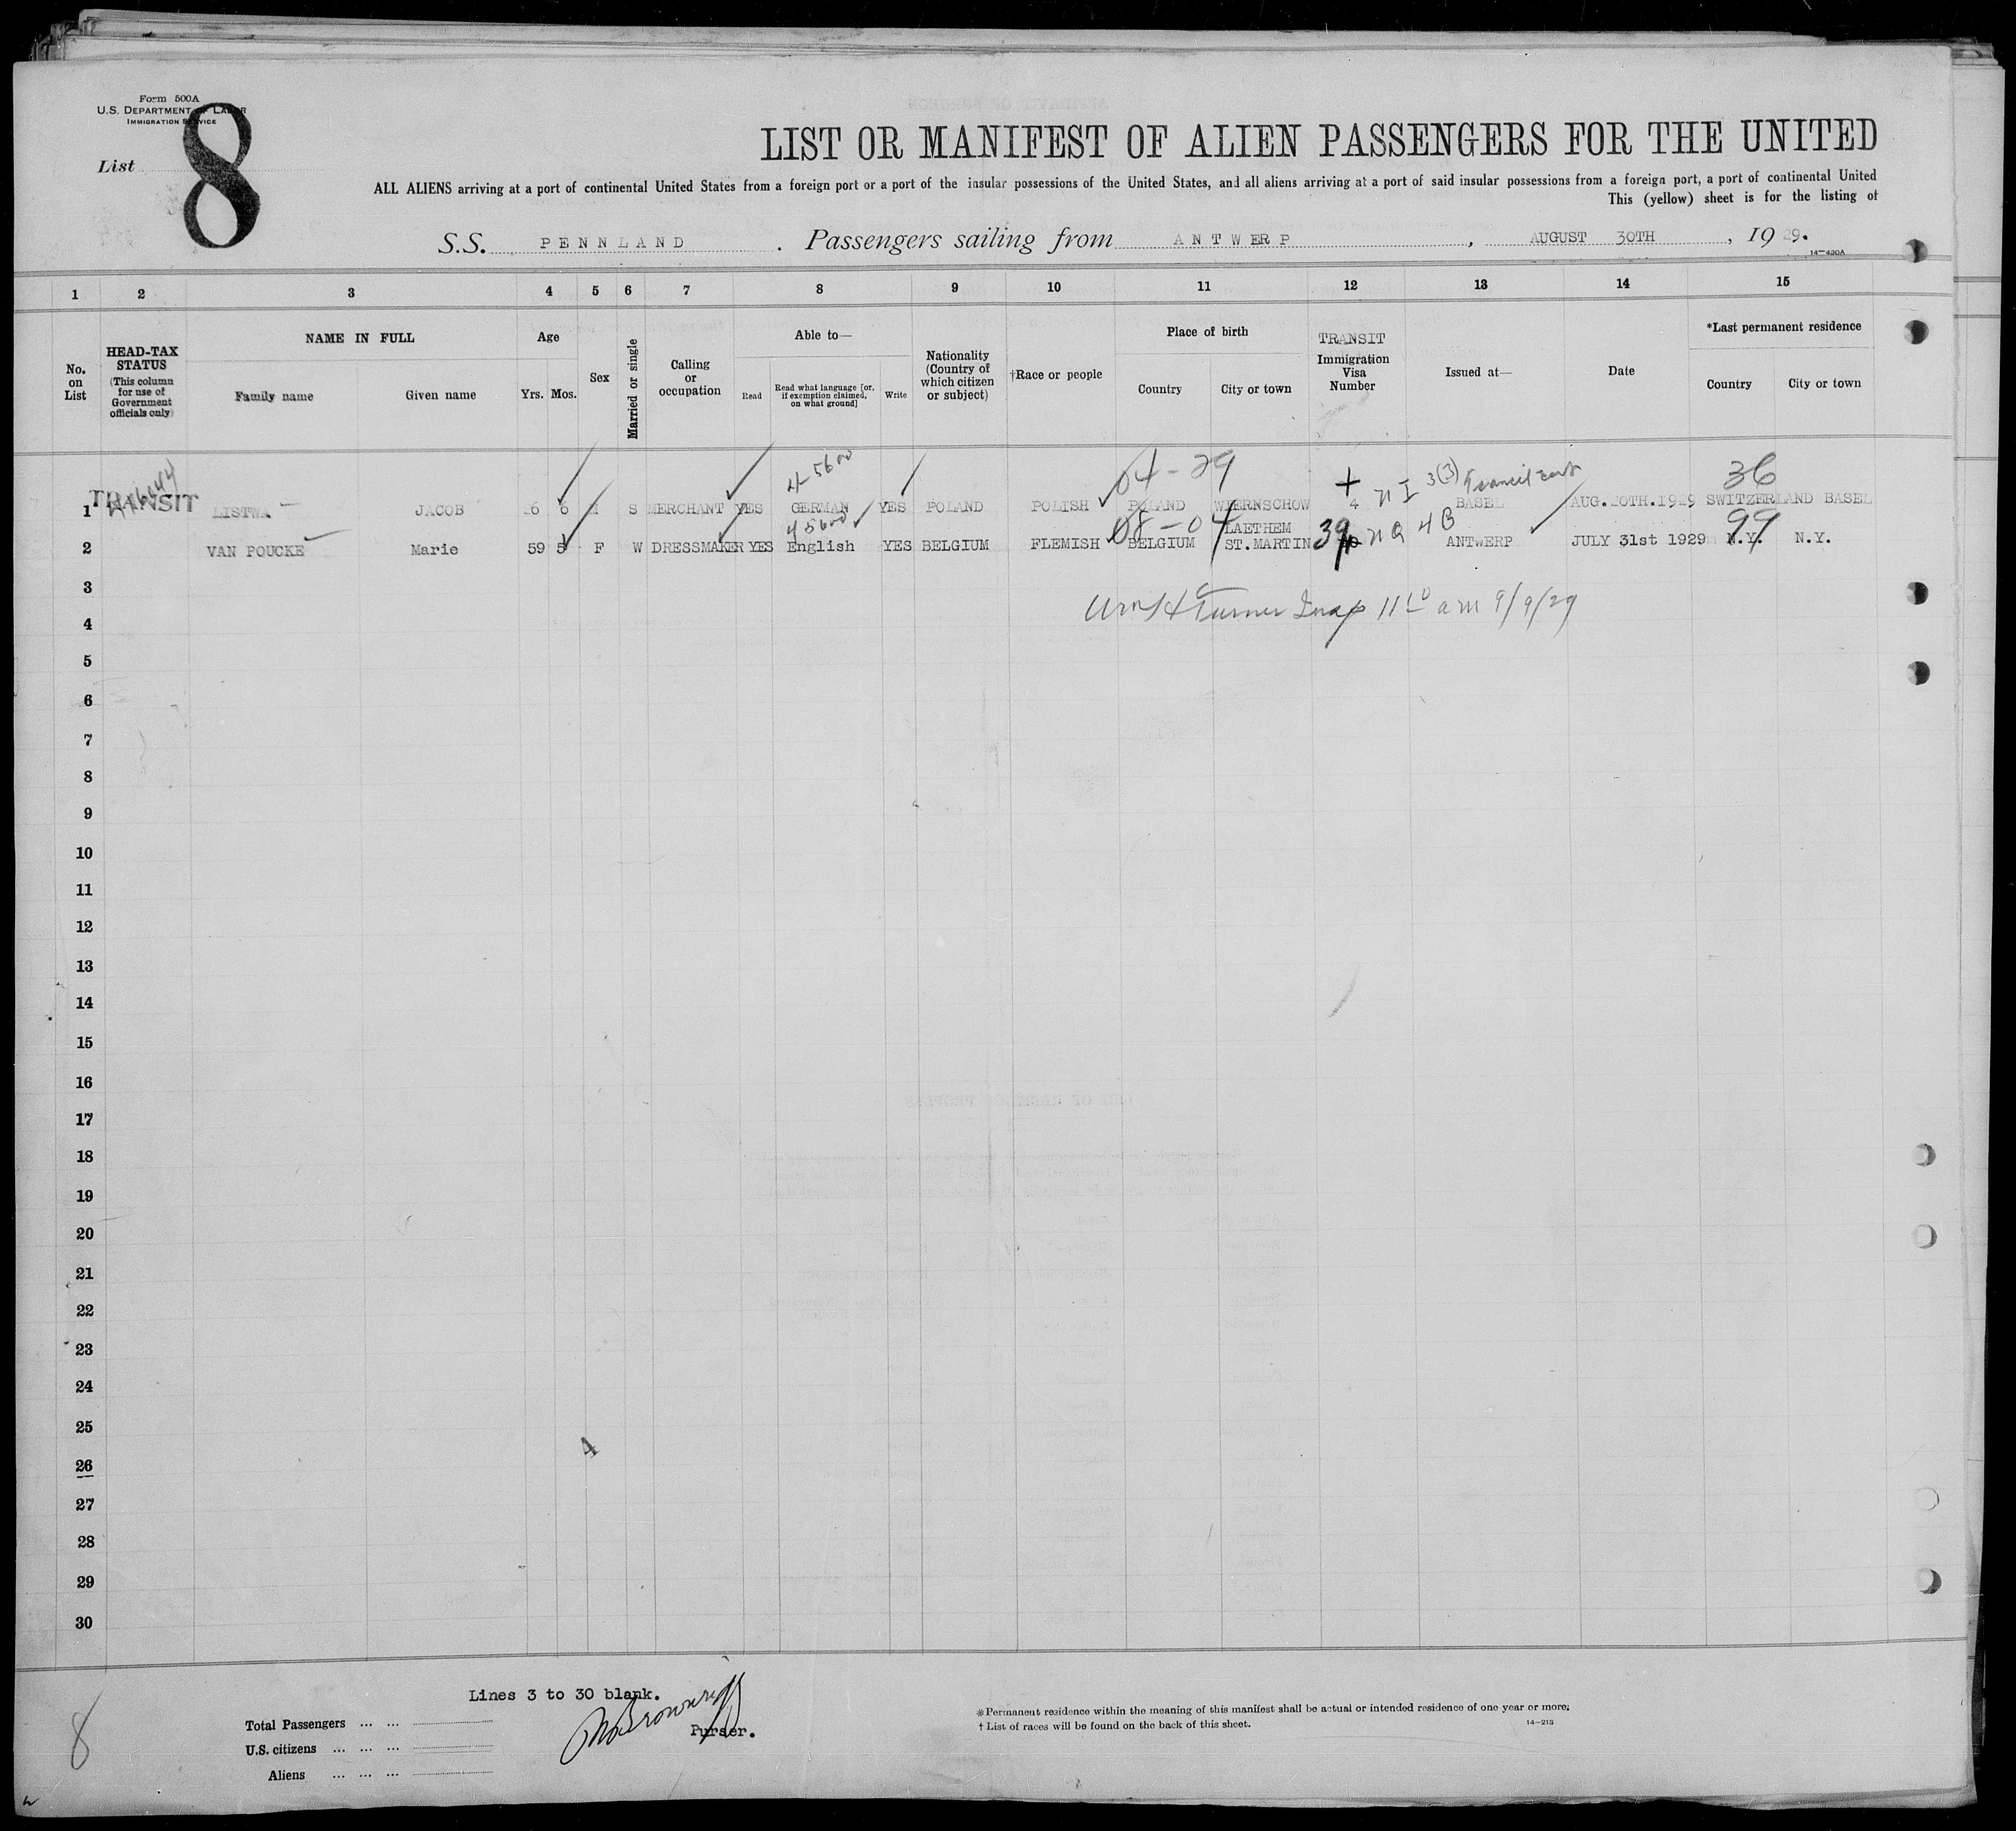 Form 500A
U.S. DEPARTMENT OF LABOR
IMMIGRATION SERVICE
List 8
LIST OR MANIFEST OF ALIEN PASSENGERS FOR THE UNITED
ALL ALIENS arriving at a port of continental United States from a foreign port or a port of the insular possessions of the United States, and all aliens arriving at a port of said insular possessions from a foreign port, a port of continental United
This (yellow) sheet is for the listing of
S.S. PENNLAND . Passengers sailing from ANTWERP , AUGUST 30TH , 19 29.
14—430A
1 2 3 4 5 6 7 8 9 10 11 12 13 14 15
No. on List
HEAD-TAX STATUS
(This column for use of Government officials only)
NAME IN FULL
Family name Given name
Age
Yrs. Mos.
Sex
Married or single
Calling or occupation
Able to—
Read Read what language [or, if exemption claimed, on what ground] Write
Nationality (Country of which citizen or subject)
†Race or people
Place of birth
Country City or town
TRANSIT
Immigration Visa Number
Issued at—
Date
*Last permanent residence
Country City or town
4-5600 04-29 + 3(3) Transit 36
1 TRANSIT JACOB 6 6 S MERCHANT YES GERMAN YES POLAND POLISH POLAND WIERNSCHOW 4 BASEL AUG. 20TH. 1929 SWITZERLAND BASEL
45600 08-04 LAETHEM 39 4B 99
2 VAN POUCKE Marie 59 5 F W DRESSMAKER YES English YES BELGIUM FLEMISH BELGIUM ST. MARTIN ANTWERP JULY 31st 1929 N.Y. N.Y.
3
Turner Insp 11 10 am 9/9/29
4
5
6
7
8
9
10
11
12
13
14
15
16
17
18
19
20
21
22
23
24
25
4
26
27
28
29
30
Lines 3 to 30 blank.
Purser.
Total Passengers ... ...
U.S. citizens ... ... ...
Aliens ... ... ...
8
*Permanent residence within the meaning of this manifest shall be actual or intended residence of one year or more.
† List of races will be found on the back of this sheet.
14—213